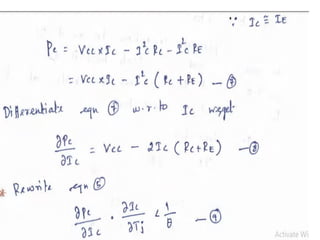 ∵ Ic ≅ IE
Pc = Vcc × Ic − Ic² Rc − Ic² RE
= Vcc × Ic − Ic² (Rc + RE) — ⑦
Differentiate eqn ⑦ w.r.to Ic we get
∂Pc/∂Ic = Vcc − 2Ic (Rc+RE) — ⑧
* Rewrite eqn ⑤
∂Pc/∂Ic · ∂Ic/∂Tj < 1/θ — ⑨
Activate Win